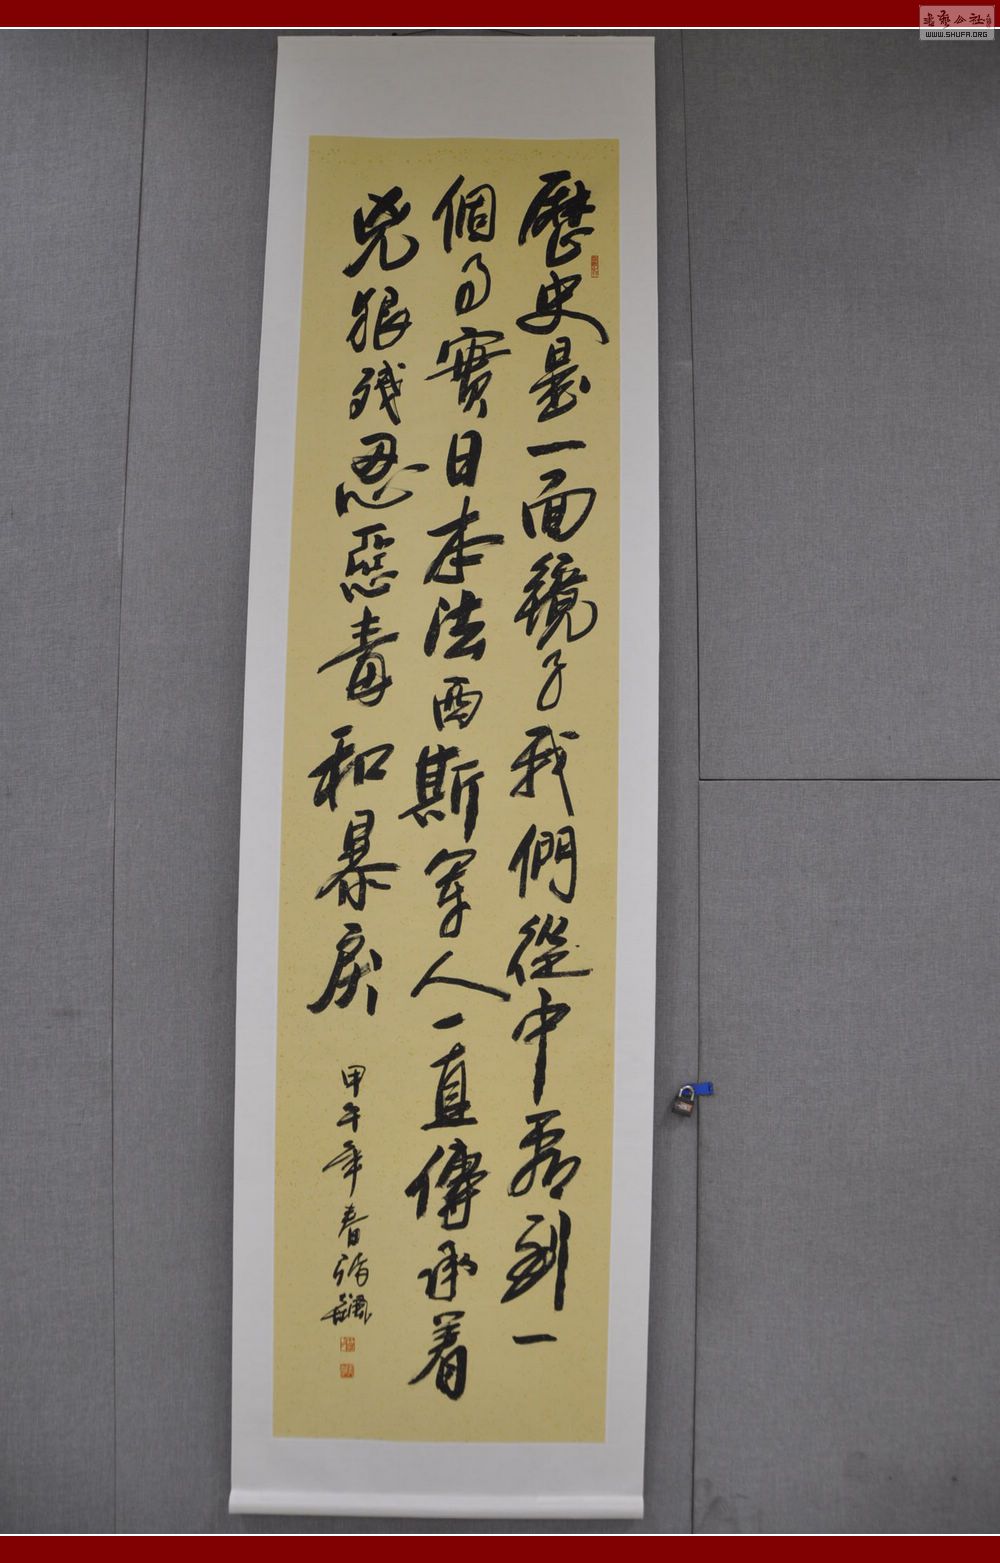 歷史是一面鏡子我們從中看到一
個事實日本法西斯軍人一直傳承着
兇狠残忍惡毒和暴戾
甲午年春
书艺公社
WWW.SHUFA.ORG